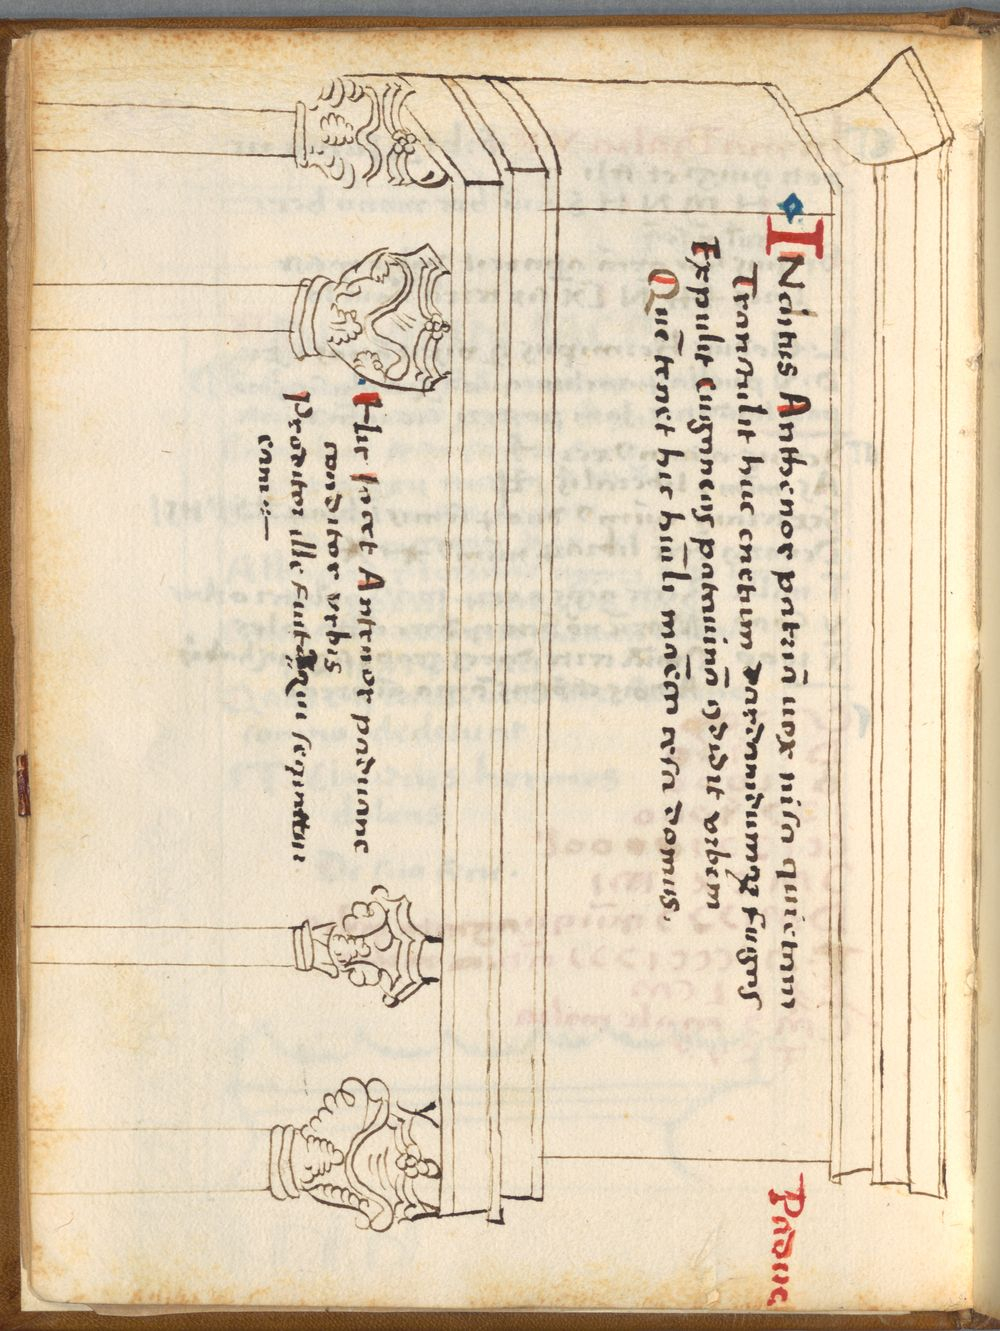 Padue
INclitus Anthenor patriā uox nisa quietam
Transtulit huc enetum dardanidumqȝ fugas
Expulit eugeneas patauinā ꝯdidit urbem
Quē tenet hic humili marmore cesa domus.
Hic Iacet Antenor paduane
conditor urbis
Proditor ille fuit Hij qui sequntur
eum